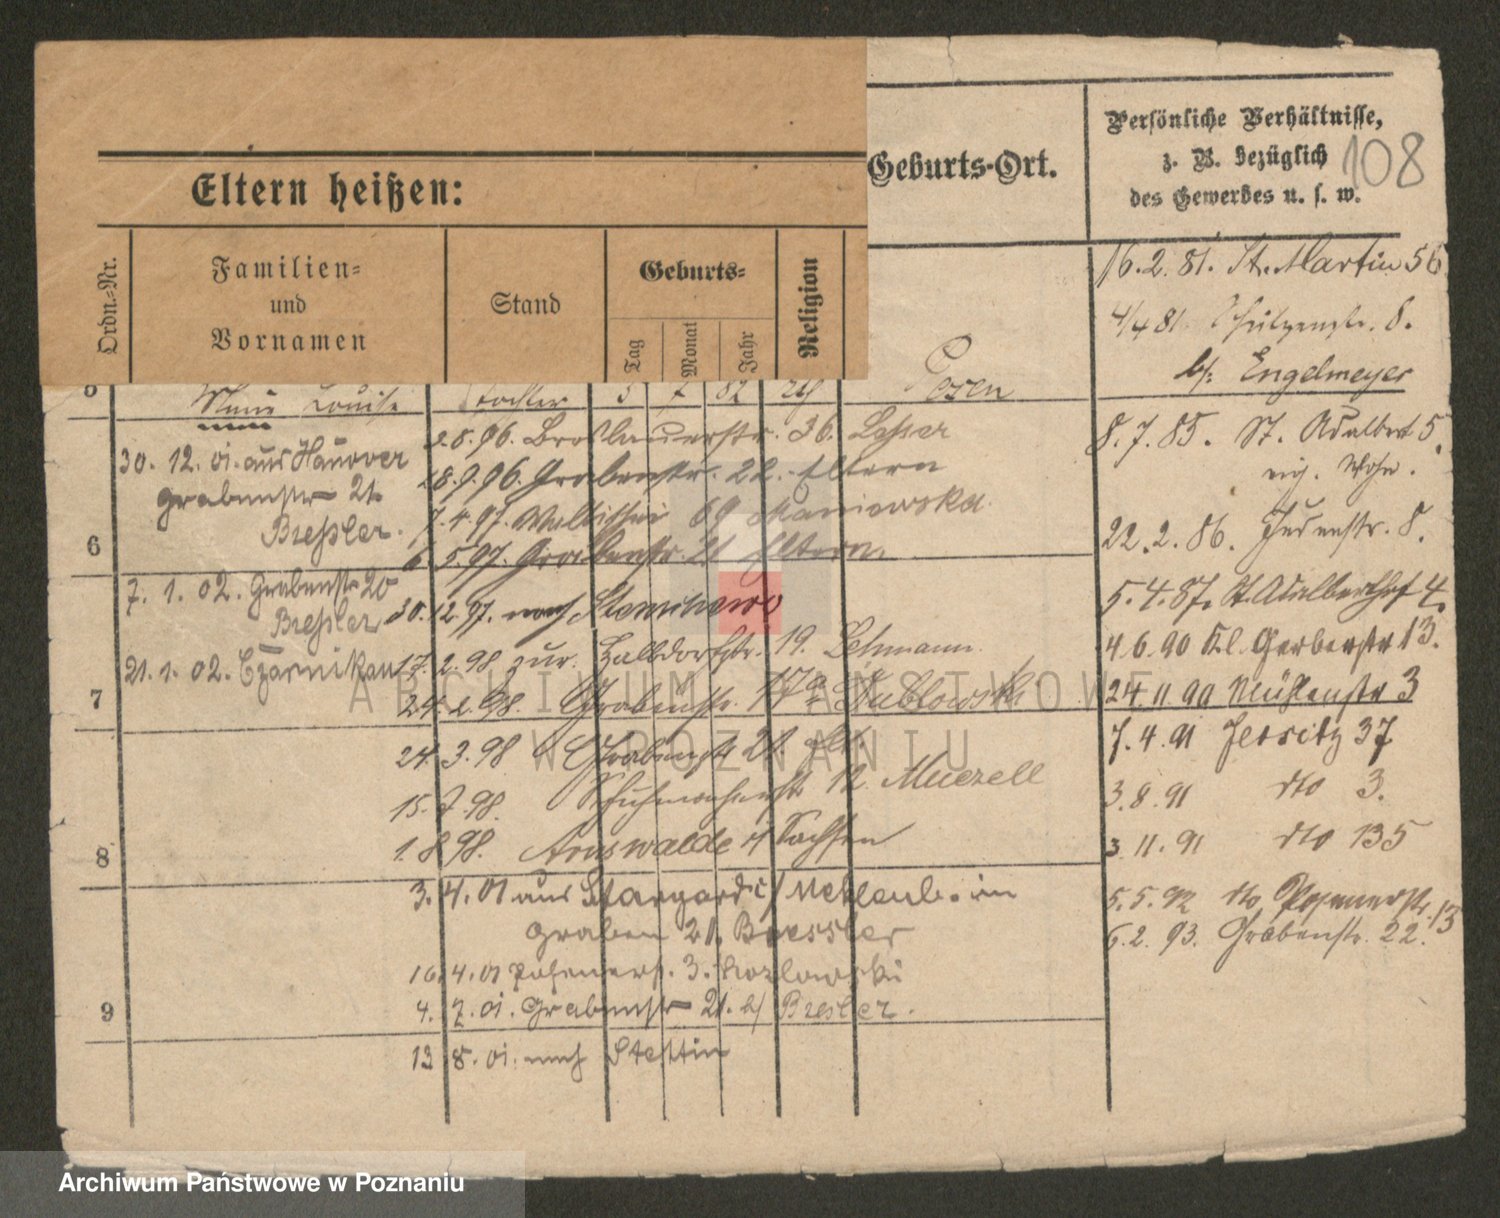 Eltern heißen:
Ordn.-Nr.
Familien-
und
Vornamen
Stand
Geburts-
Tag
Monat
Jahr
Religion
Geburts-Ort.
Persönliche Verhältnisse,
z. B. bezüglich
des Gewerbes u. s. w.
108
16.2.81. St. Martin 56
4/4 81. Schützenstr. 8.
b/. Engelmeyer
Louise Tochter 82 Posen
8.7.85. St. Adalbert 5.
22.2.86. Judenstr. 8.
5.4.87. St. Adalberthof 4.
4.6.90 Kl. Gerberstr 13.
24.11.90 Mühlenstr 3
7.4.91 Jersitz 37
3.8.91 dto 3.
3.11.91 dto 135
5.5.92 dto Posenerstr. 13
6.2.93. Grabenstr. 22.
30.12.01. aus Hanover
Grabenstr 21.
Bressler.
6
7.1.02. Grabenstr 20
Bressler
21.1.02. Czarnikau
7
8
9
8.96. Breslauerstr. 36. Lesser
8.9.96. Grabenstr. 22. Eltern
7.4.97. Wallischei 69 Maniewska.
6 5.97. Grabenstr. 21 Eltern
30.12.97. nach
17.2.98. zur. Halbdorfstr. 19. Lehmann.
24.2.98. Grabenstr. 17a Kublowski
24.3.98 Grabenstr 21.
15.7.98. Schuhmacherstr 12 Muczell
1.8.98. Arnswalde
3.4.01 aus Stargard i/ Meklenb. in
Graben 21. Bressler
16.4.01 Posenerst. 3. Kozlowski
4.7.01. Grabenstr 21. b/ Bresler.
13 8.01. nach Stettin
ARCHIWUM PAŃSTWOWE
W POZNANIU
Archiwum Państwowe w Poznaniu